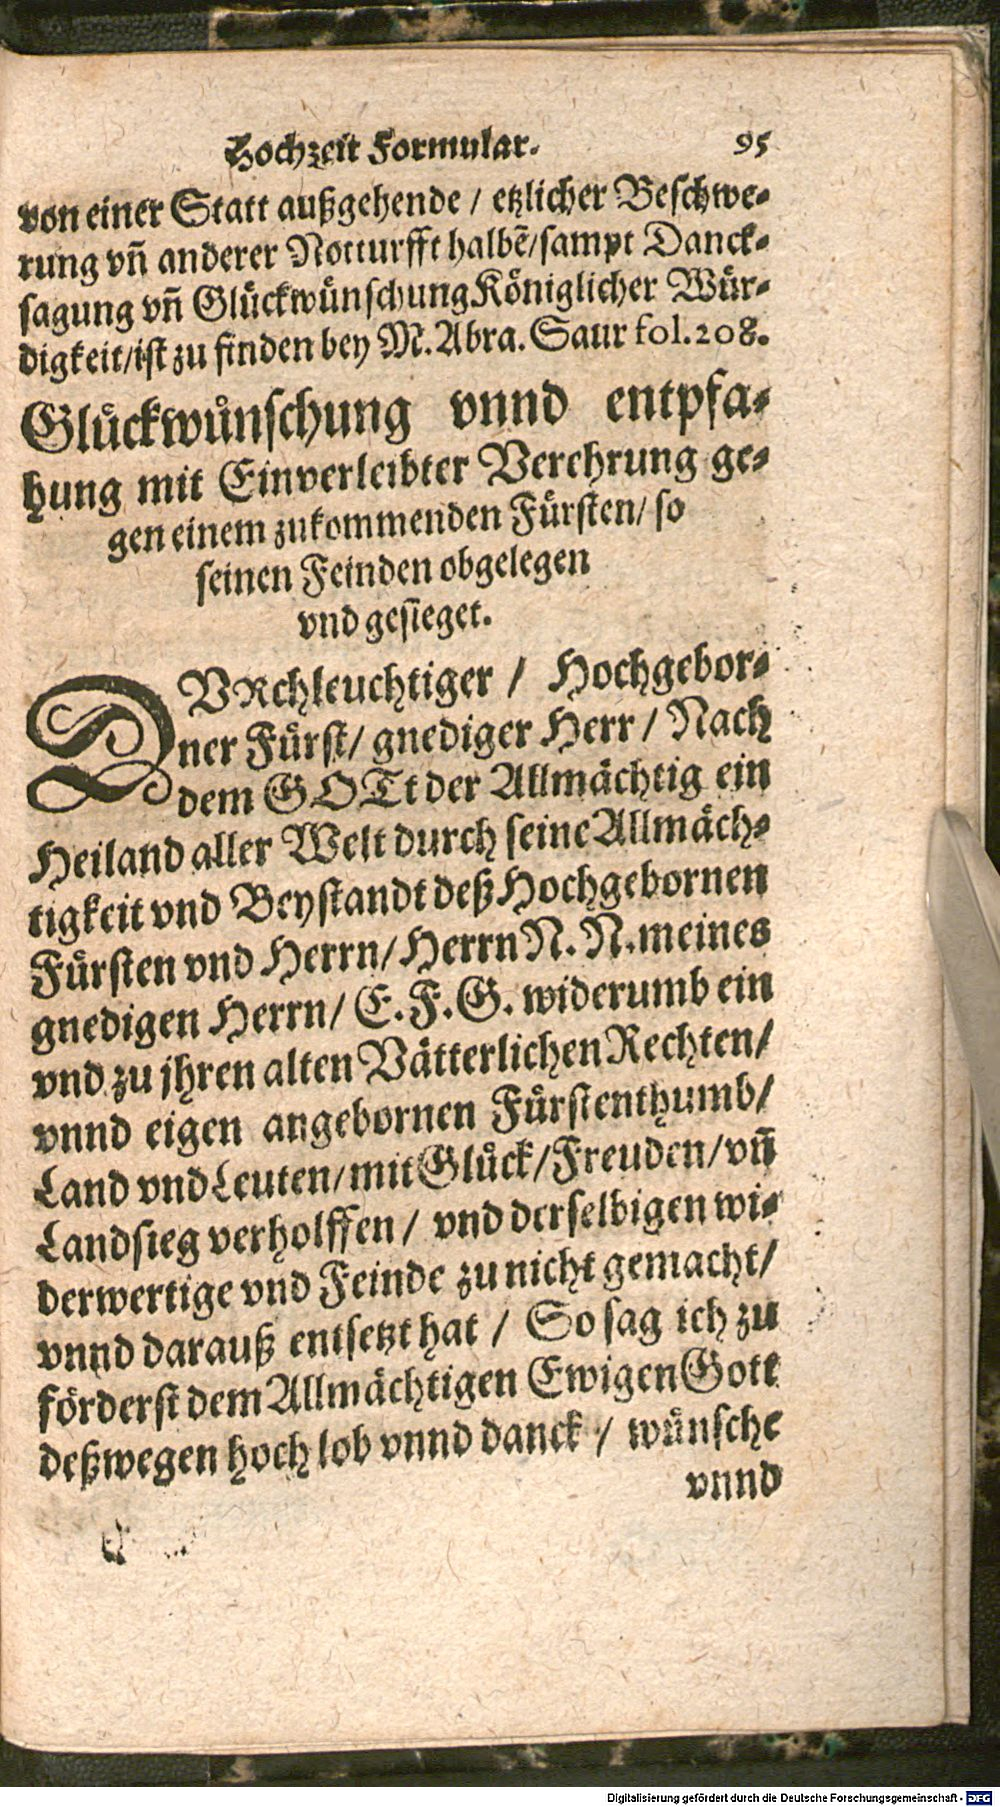 Hochzeit Formular. 95
von einer Statt außgehende / etzlicher Beschwe-
rung vñ anderer Notturfft halbẽ/sampt Danck-
sagung vñ Glückwünschung Königlicher Wür-
digkeit/ist zu finden bey M. Abra. Saur fol.208.
Glückwünschung vnnd entpfa-
hung mit Einverleibter Verehrung ge-
gen einem zukommenden Fürsten/ so
seinen Feinden obgelegen
vnd gesieget.
DVRchleuchtiger / Hochgebor-
ner Fürst/ gnediger Herr / Nach
dem GOTt der Allmächtig ein
Heiland aller Welt durch seine Allmäch-
tigkeit vnd Beystandt deß Hochgebornen
Fürsten vnd Herrn/ Herrn N. N. meines
gnedigen Herrn/ E. F. G. widerumb ein
vnd zu jhren alten Vätterlichen Rechten/
vnnd eigen angebornen Fürstenthumb/
Land vnd Leuten/ mit Glück/ Freuden/ vñ
Landsieg verholffen / vnd derselbigen wi-
derwertige vnd Feinde zu nicht gemacht/
vnnd darauß entsetzt hat / So sag ich zu
förderst dem Allmächtigen Ewigen Gott
deßwegen hoch lob vnnd danck / wünsche
vnnd
Digitalisierung gefördert durch die Deutsche Forschungsgemeinschaft - DFG